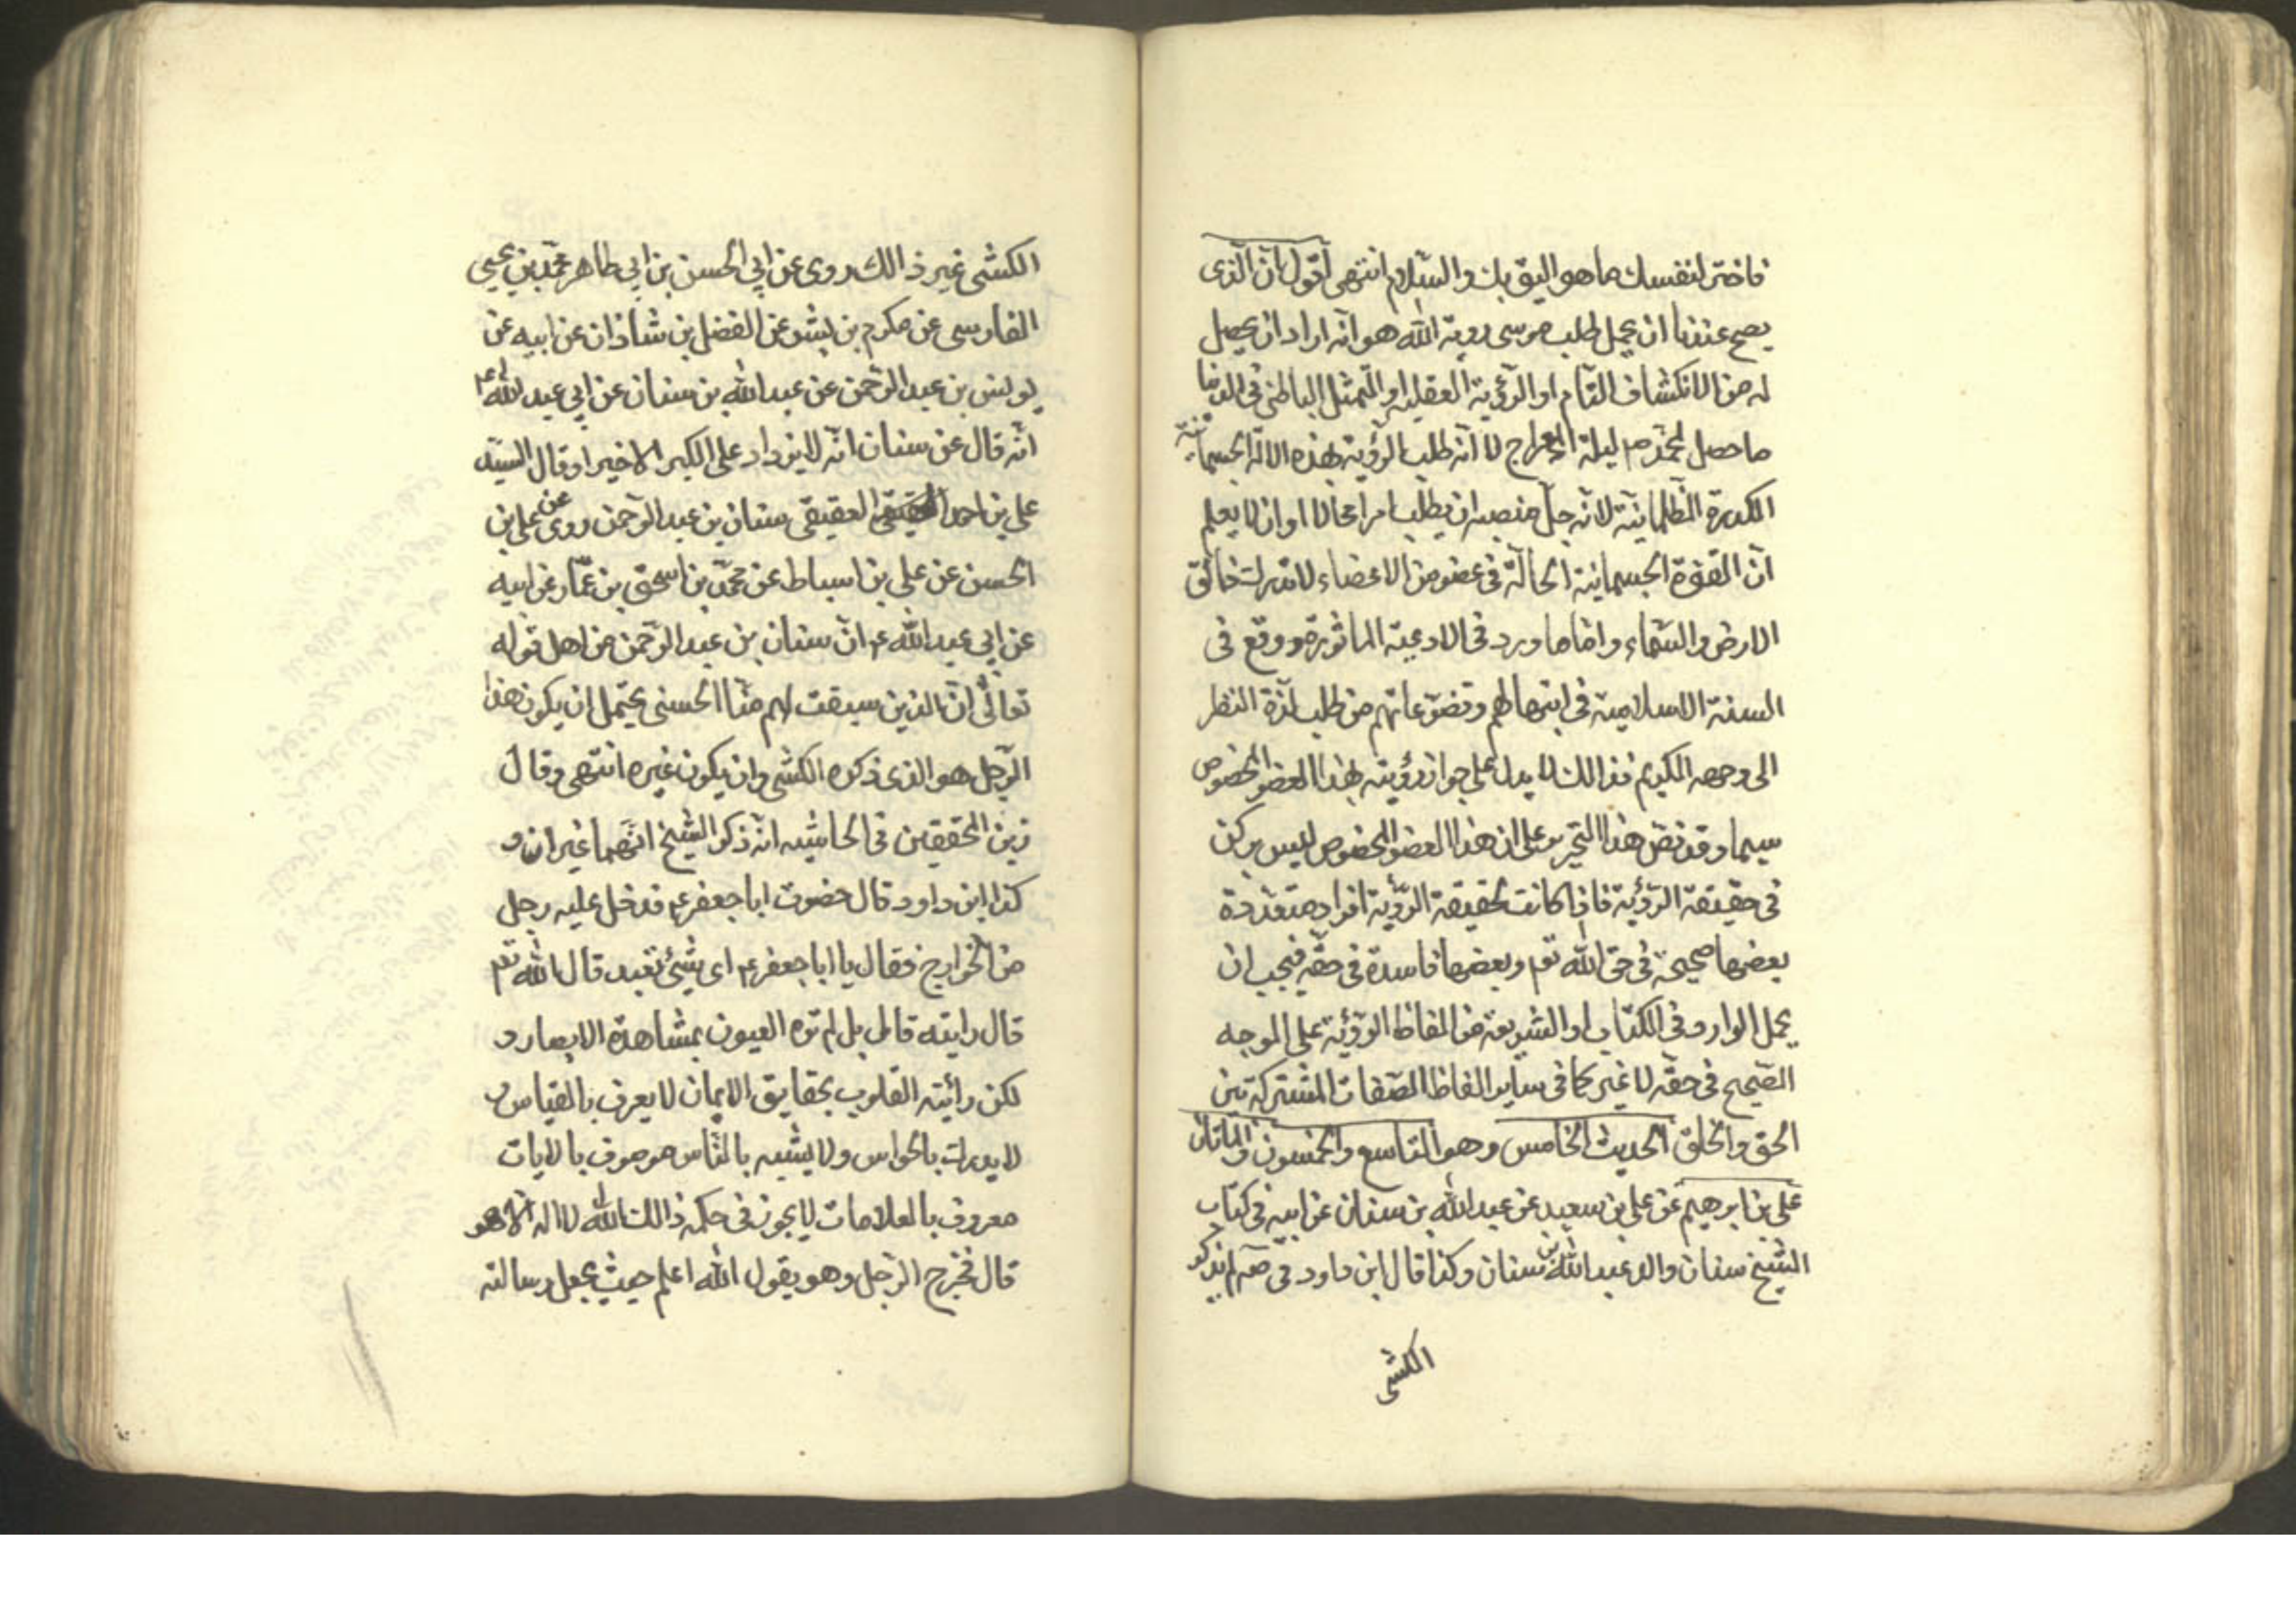 فاختر لنفسك ما هو اليق بك والسلام انتهى اقول ان الذى
يصح عندنا ان يحمل طلب موسى روية الله هو انه اراد ان يحصل
له من الانكشاف التام او الرؤية العقلية او التمثل الباطنى فى الدنيا
ما حصل لمحمد ص ليلة المعراج لا انه طلب الرؤية بهذه الالة الجسمانية
الكدرة الظلمانية لانه جل منصبه ان يطلب امرا محالا او ان لا يعلم
ان القوة الجسمانية الحالة فى عضو من الاعضاء لا تدرك خالق
الارض والسماء واما ما ورد فى الادعية الماثورة ووقع فى
السنة الاسلامية فى ابتهالهم وتضرعاتهم من طلب لذة النظر
الى وجهه الكريم فذالك لا يدل على جواز رؤيته بهذا العضو المخصوص
سيما وقد نص هذا النحرير على ان هذا العضو المخصوص ليس بركن
فى حقيقة الرؤية فاذا كانت لحقيقة الرؤية افراد متعددة
بعضها صحيحة فى حق الله تعم وبعضها فاسدة فى حقه فيجب ان
يحمل الوارد فى الكتاب او الشريعة من الفاظ الرؤية على الوجه
الصحيح فى حقه لا غير كما فى ساير الفاظ الصفات المشتركة بين
الحق والخلق الحديث الخامس وهو التاسع والخمسون والماتان
على بن ابرهيم عن على بن سعيد عن عبد الله بن سنان عن ابيه فى كتاب
الشيخ سنان والد عبد الله بن سنان وكذا قال ابن داود فى صه لم يذكر
الكشى
الكشى غير ذالك روى عن ابى الحسن بن ابى طاهر محمد بن يحيى
الفارسى عن مكرم بن بشر عن الفضل بن شاذان عن ابيه عن
يونس بن عبد الرحمن عن عبد الله بن سنان عن ابى عبد الله ع
انه قال عن سنان انه لا يزداد على الكبر الا خيرا وقال السيد
على بن احمد العقيقى سنان بن عبد الرحمن روى عن على بن
الحسن عن على بن اسباط عن محمد بن اسحق بن عمار عن ابيه
عن ابى عبد الله ع ان سنان بن عبد الرحمن من اهل قوله
تعالى ان الذين سبقت لهم منا الحسنى يحتمل ان يكون هذا
الرجل هو الذى ذكره الكشى وان يكون غيره انتهى وقال
زين المحققين فى الحاشيه انه ذكر الشيخ انهما غيران و
كذا ابن داود قال حضرت ابا جعفر ع فدخل عليه رجل
من الخوارج فقال يا ابا جعفر ع اى شئ تعبد قال الله تعم
قال رايته قال بل لم تره العيون بمشاهدة الابصار و
لكن رأيته القلوب بحقايق الايمان لا يعرف بالقياس و
لا يدرك بالحواس ولا يشبه بالناس موصوف بالايات
معروف بالعلامات لا يجور فى حكمه ذالك الله لا اله الا هو
قال فخرج الرجل وهو يقول الله اعلم حيث يجعل رسالته